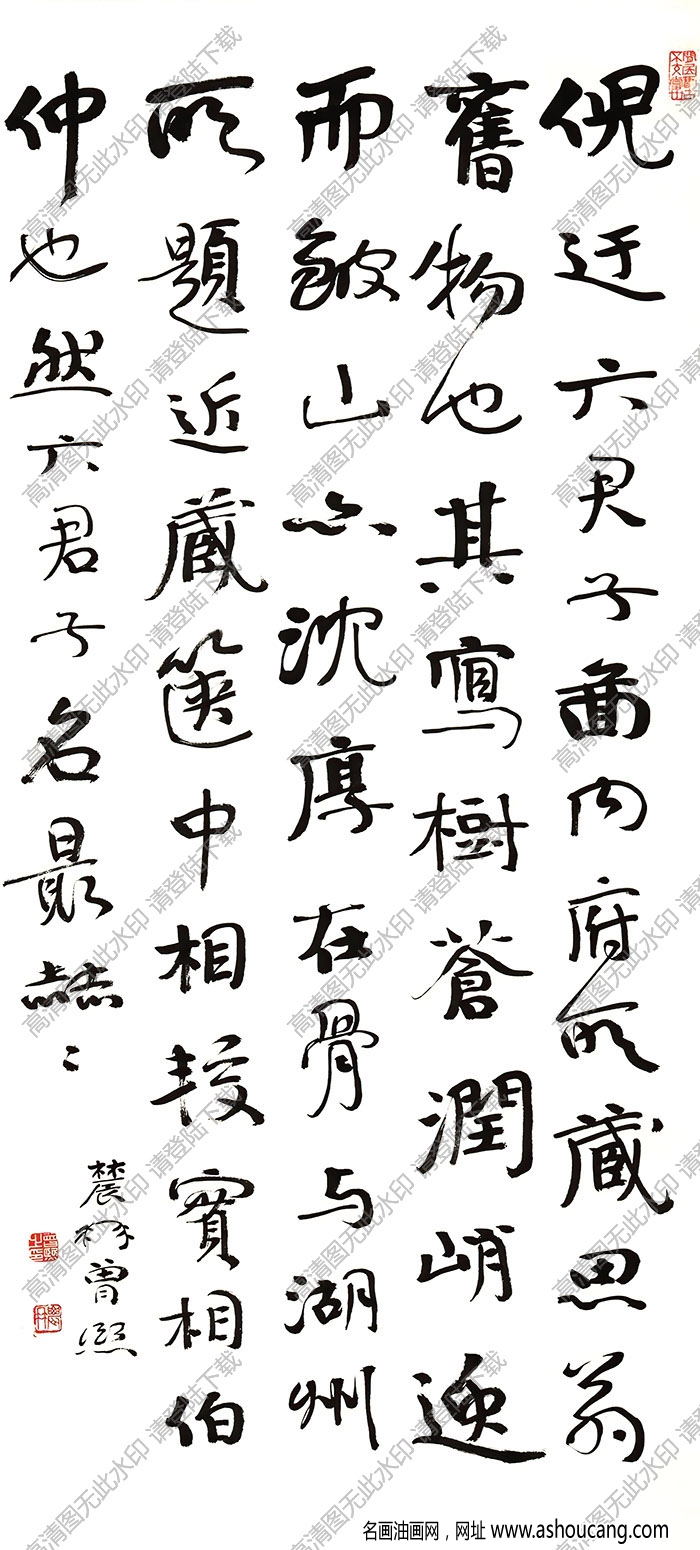 倪迂六君子圖内府所藏思翁
舊物也其寫樹蒼潤峭逸
而皴山亦沈厚在骨与湖州
所題近藏篋中相較實相伯
仲也然六君子名最赫赫
農髯曾熙
高清图无此水印 请登陆下载
名画油画网，网址 www.ashoucang.com